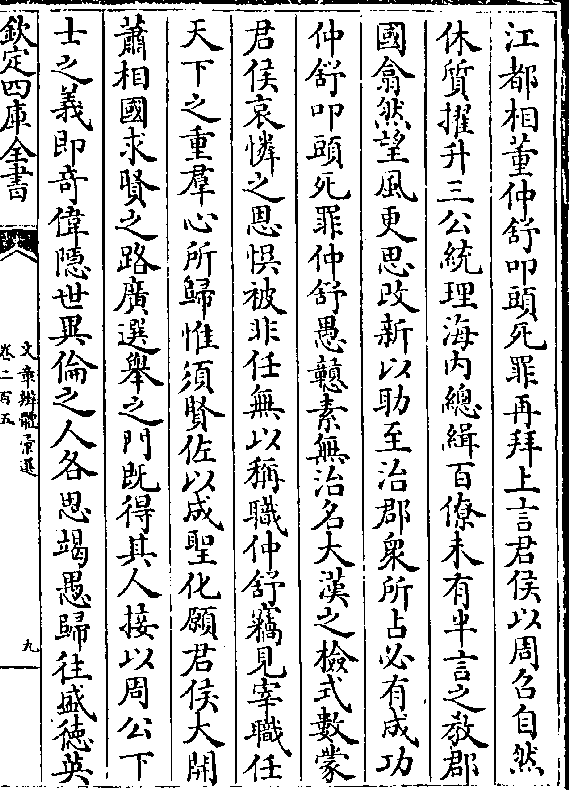 江都相董仲舒叩頭死罪再拜上言君侯以周召自然
休質擢升三公統理海内總緝百僚未有半言之教郡
國翕然望風更思改新以助至治郡衆所占必有成功
仲舒叩頭死罪仲舒愚戇素無治名大漢之檢式數蒙
君侯哀憐之恩悞被非任無以稱職仲舒竊見宰職任
天下之重羣心所歸惟須賢佐以成聖化願君侯大開
蕭相國求賢之路廣選舉之門既得其人接以周公下
士之義即竒偉隱世異倫之人各思竭愚歸往盛徳英
欽定四庫全書
文章辨體彚選
卷二百五
九